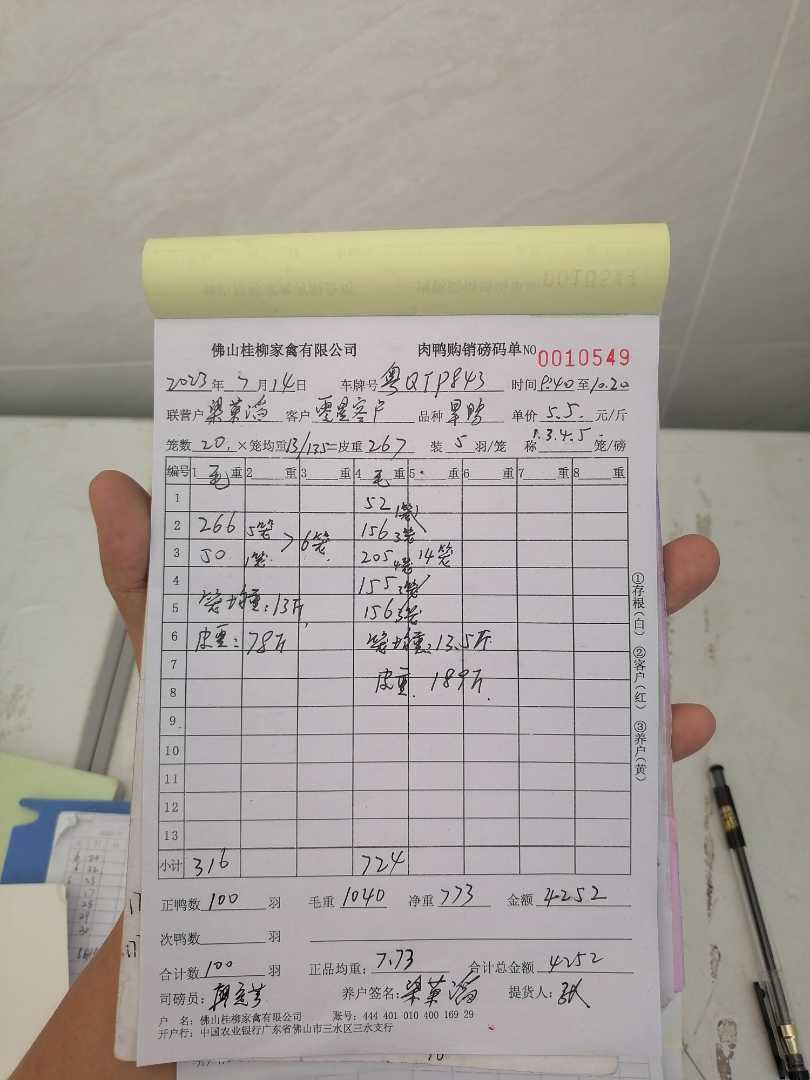 佛山桂柳家禽有限公司 肉鸭购销磅码单 NO 0010549
2023年7月14日 车牌号 粤QTP843 时间 9:40至10:20
联营户 梁菓滔 客户 零星客户 品种 旱鸭 单价 5.5 元/斤
笼数 20 ×笼均重 13/13.5 =皮重 267 装 5 羽/笼 称 1.3.4.5 笼/磅
编号 1 毛 重 2 重 3 重 4 毛 重 5 重 6 重 7 重 8 重
1 52 1笼
2 266 5笼 156 3笼
3 50 1笼 >6笼 205 4笼 14笼
4 155 3笼
5 笼均重:13斤 156 3笼
6 皮重:78斤 笼均重:13.5斤
7
8 皮重 189斤
9
10
11
12
13
小计 316 724
正鸭数 100 羽 毛重 1040 净重 773 金额 4252
次鸭数 羽
合计数 100 羽 正品均重: 7.73 合计总金额 4252
司磅员: 养户签名: 梁菓滔 提货人: 张
户 名: 佛山桂柳家禽有限公司 账号: 444 401 010 400 169 29
开户行: 中国农业银行广东省佛山市三水区三水支行
①存根(白) ②客户(红) ③养户(黄)